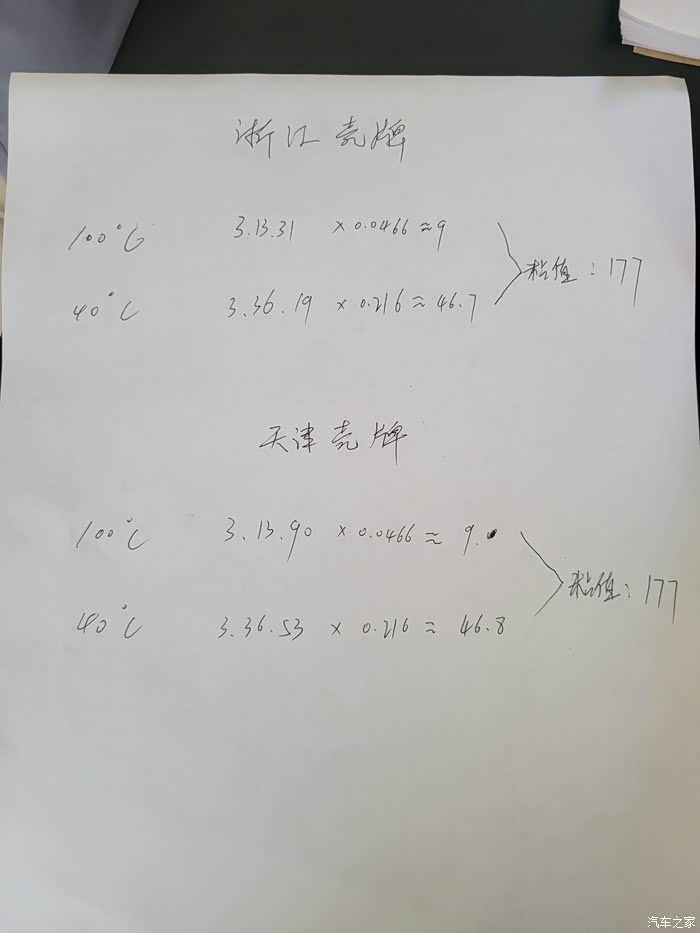 浙江壳牌
100°C 3.13.31 × 0.0466 ≈ 9
粘值：177
40°C 3.36.19 × 0.216 ≈ 46.7
天津壳牌
100°C 3.13.90 × 0.0466 ≈ 9.
粘值：177
40°C 3.36.53 × 0.216 = 46.8
汽车之家